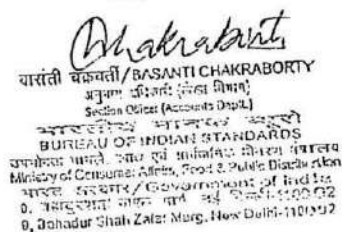 Chakraborty
वासंती चक्रवर्ती/BASANTI CHAKRABORTY
अनुभाग अधिकारी (लेखा विभाग)
Section Officer (Accounts Deptt.)
भारतीय मानक ब्यूरो
BUREAU OF INDIAN STANDARDS
उपभोक्ता मामले, खाद्य एवं सार्वजनिक वितरण मंत्रालय
Ministry of Consumer Affairs, Food & Public Distribution
भारत सरकार/Government of India
9, बहादुरशाह जफर मार्ग, नई दिल्ली-110002
9, Bahadur Shah Zafar Marg, New Delhi-110002